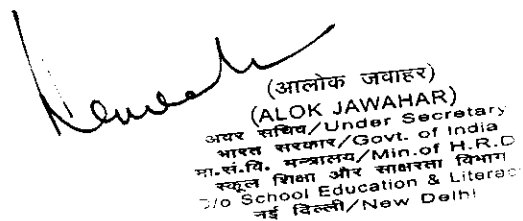 (आलोक जवाहर)
(ALOK JAWAHAR)
अवर सचिव/Under Secretary
भारत सरकार/Govt. of India
मा.सं.वि. मन्त्रालय/Min.of H.R.D
स्कूल शिक्षा और साक्षरता विभाग
D/o School Education & Literac
नई दिल्ली/New Delhi